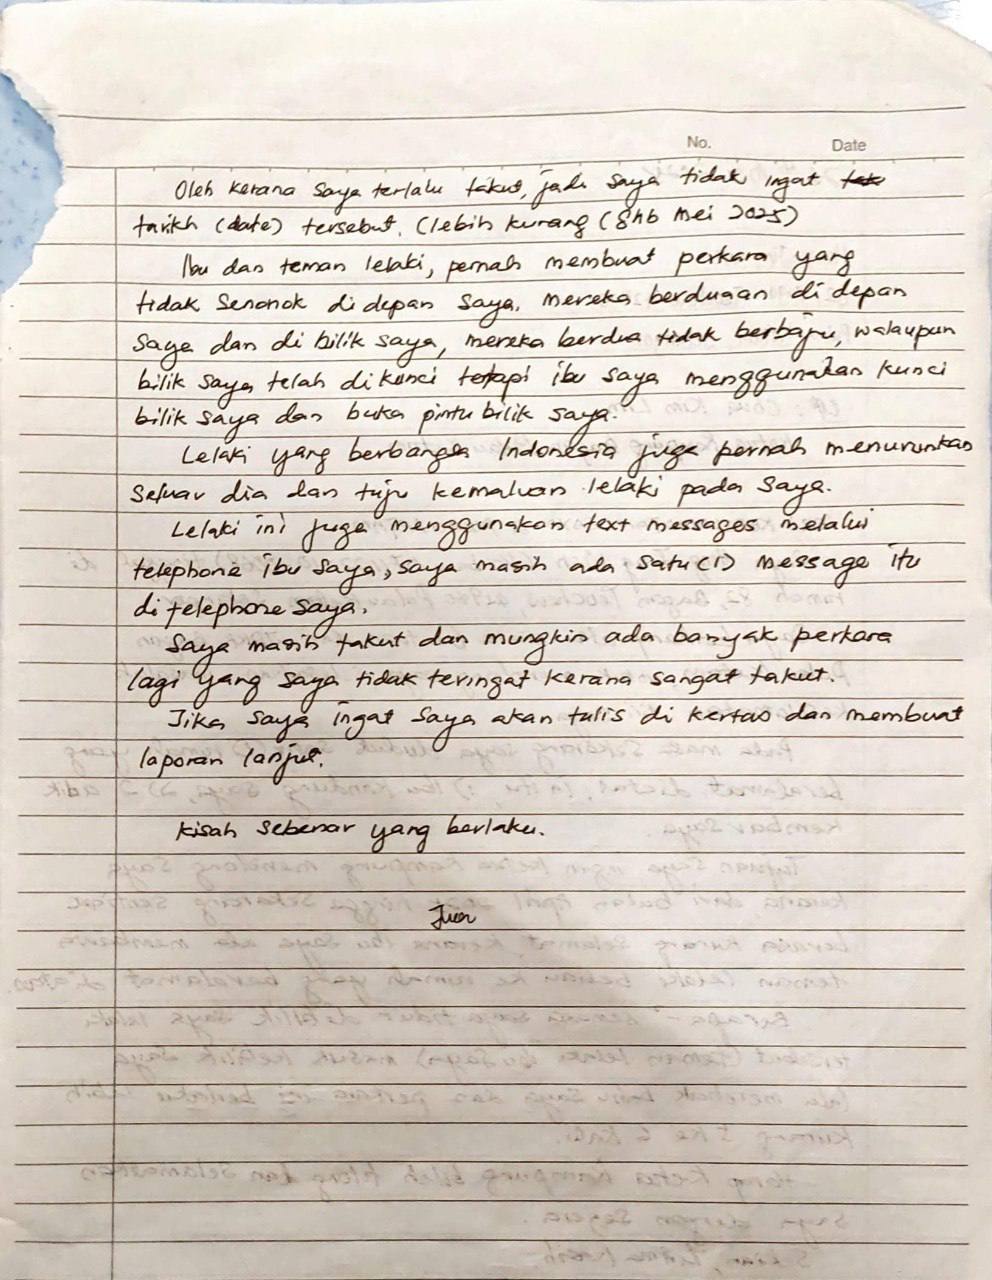 No. Date
Oleh kerana saya terlalu takut, jadi saya tidak ingat
tarikh (date) tersebut. (lebih kurang ( Mei 2025)
Ibu dan teman lelaki, pernah membuat perkara yang
tidak senonok di depan saya. mereka berduaan di depan
saya dan di bilik saya, mereka berdua tidak berbaju, walaupun
bilik saya telah dikunci tetapi ibu saya menggunakan kunci
bilik saya dan buka pintu bilik saya.
Lelaki yang berbangsa Indonesia juga pernah menurunkan
seluar dia dan tuju kemaluan lelaki pada saya.
Lelaki ini juga menggunakan text messages melalui
telephone ibu saya, saya masih ada satu (1) message itu
di telephone saya.
Saya masih takut dan mungkin ada banyak perkara
lagi yang saya tidak teringat kerana sangat takut.
Jika saya ingat saya akan tulis di kertas dan membuat
laporan lanjut.
Kisah sebenar yang berlaku.